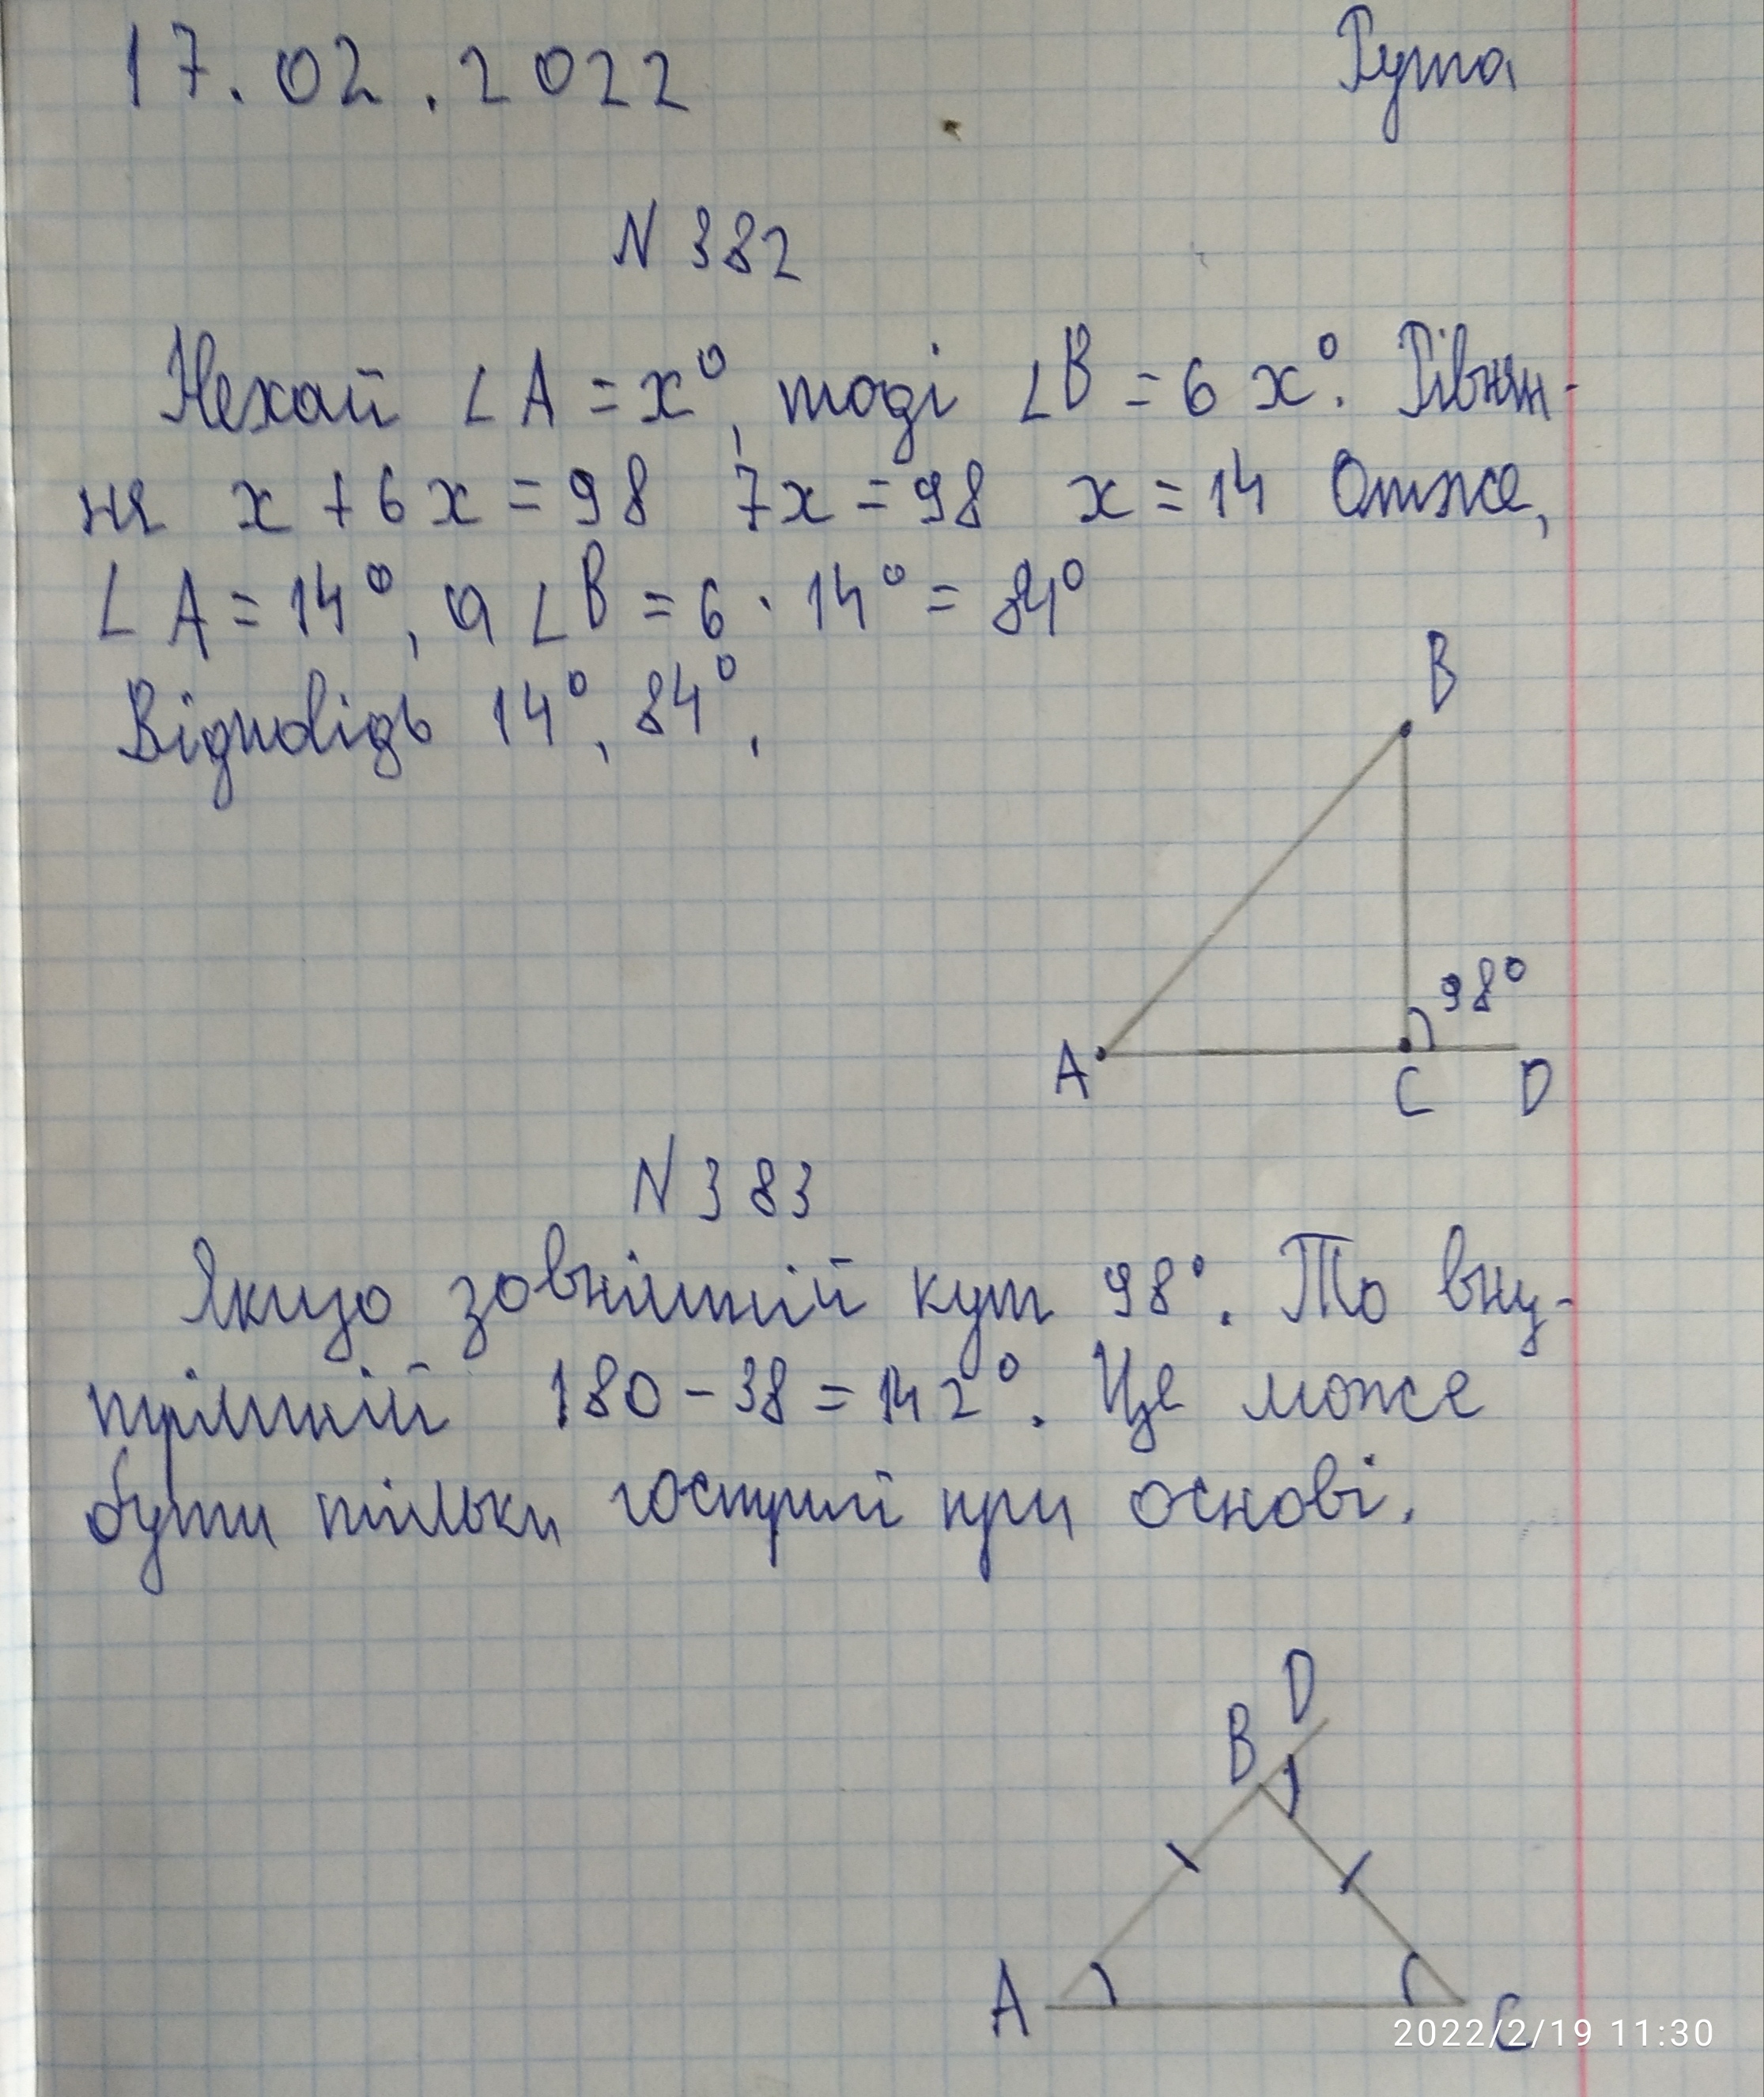 17.02.2022 Рута
N 382
Нехай ∠A = x°, тоді ∠B = 6x°. Рівнян-
ня x + 6x = 98 7x = 98 x = 14 Отже,
∠A = 14°, а ∠B = 6 · 14° = 84°
Відповідь 14°, 84°,
B
98°
A C D
N 383
Якщо зовнішній кут 98°. То вну-
трішній 180 - 38 = 142°. Це може
бути тільки гострий при основі.
D
B
A C
2022/2/19 11:30